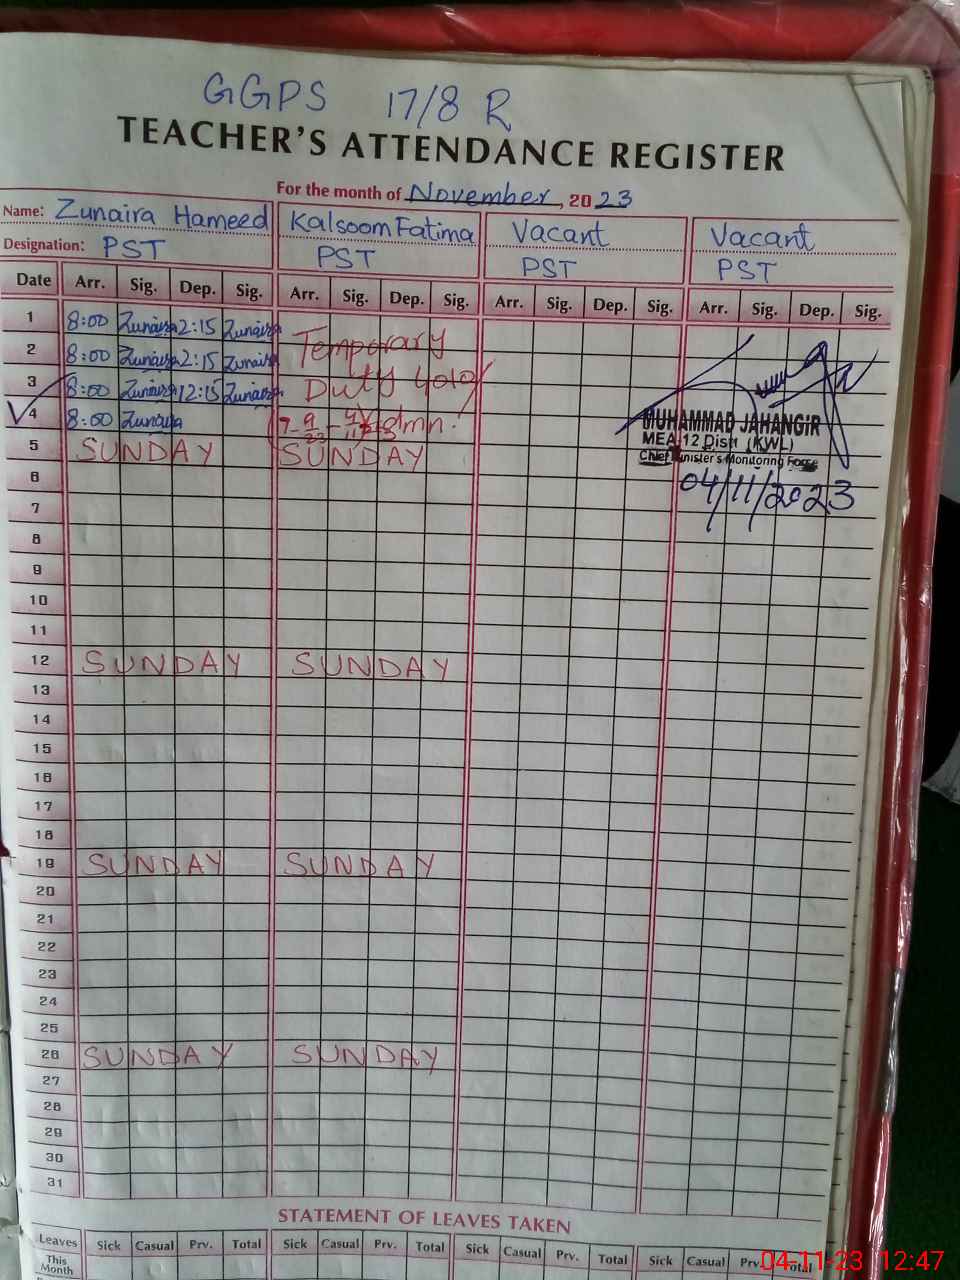 GGPS 17/8 R
TEACHER'S ATTENDANCE REGISTER
For the month of November, 2023
Name: Zunaira Hameed Kalsoom Fatima Vacant Vacant
Designation: PST PST PST PST
Date Arr. Sig. Dep. Sig. Arr. Sig. Dep. Sig. Arr. Sig. Dep. Sig. Arr. Sig. Dep. Sig.
1 8:00 Zunaira 2:15 Zunaira Temporary
2 8:00 Zunaira 2:15 Zunaira
3 8:00 Zunaira 12:15 Zunaira Duty
4 8:00 Zunaira
MUHAMMAD JAHANGIR
MEA-12 Distt (KWL)
Chief Minister's Monitoring Force
5 SUNDAY SUNDAY
04/11/2023
6
7
8
9
10
11
12 SUNDAY SUNDAY
13
14
15
16
17
18
19 SUNDAY SUNDAY
20
21
22
23
24
25
26 SUNDAY SUNDAY
27
28
29
30
31
STATEMENT OF LEAVES TAKEN
Leaves Sick Casual Prv. Total Sick Casual Prv. Total Sick Casual Prv. Total Sick Casual Prv. Total
This
Month
04-11-23 12:47